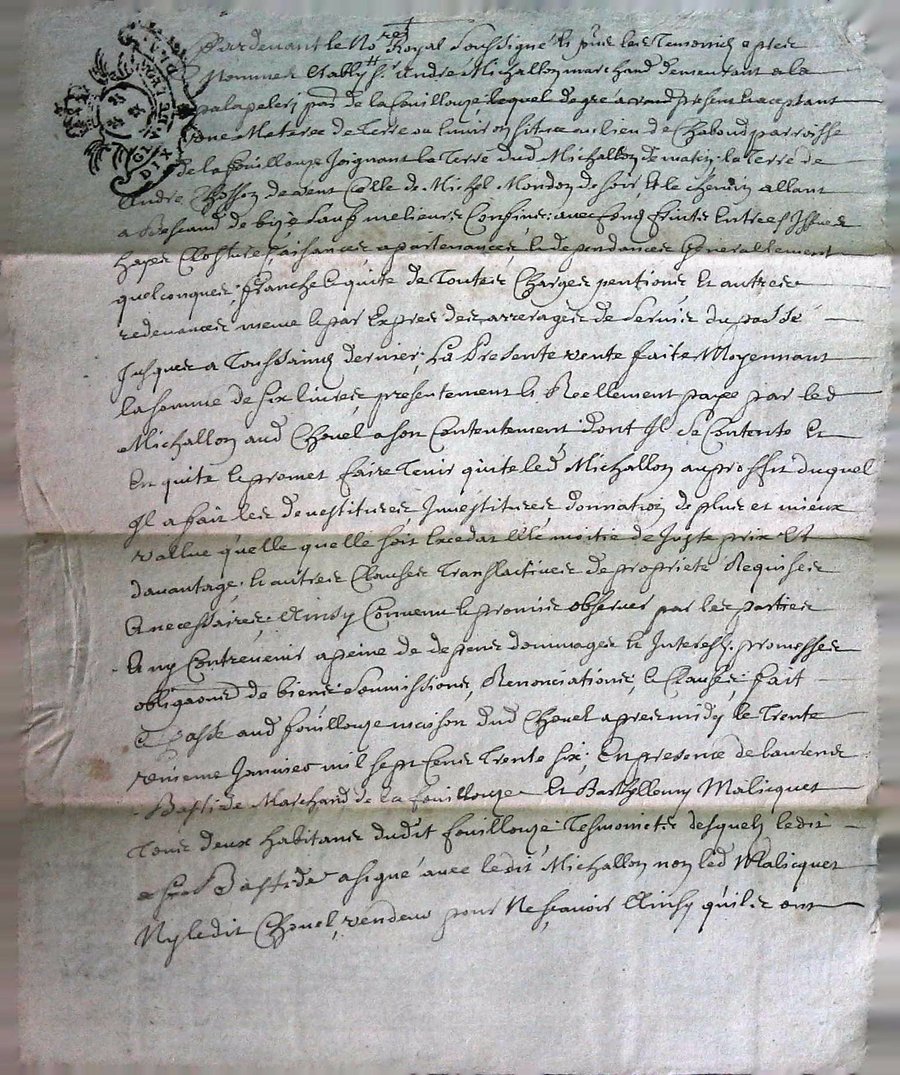 Pardevant le No.re Royal Soussigné & pnts les Temoins apres
Nommes Estably Sr. André Michallon marchand demeurant a la
par de la fouillouze lequel de gré a vendu present & acceptant
une Meterée de Terre ou environ située au lieu de Chaboud parroisse
de la fouillouze Joignant la Terre dud Michallon de matin, la Terre de
André Chosson de vent Celle de Michel Mondon de soir, Et le chemin allant
a de bize sauf melieurs Confins: avec fond fruits Entrees Issues
hayes Clostures aisances, apartenances, & dependances Generallement
quelconques, franche & quite de Toutes Charges pentions Et autres
redevances meme & par Expres des arrerages de servis du passé
Jusques a Toussaints dernier, La Presente vente faite Moyennant
la somme de six livres, presentement & Reellement payé par led
Michallon aud Chovel a son Contentement, dont Il se Contente Et
En quite & promet faire Tenir quite led Michallon au proffit duquel
Il a fait les devestitures Investitures donnation de plus et mieux
vallue quelle quelle soit Excedat Elle moitié de Juste prix Et
davantage, & autres Clauses Translatives de propriete Requises
& necessaires, Ainsy Convenu & promis observer par les parties
Et ny Contrevenir a peine de depens dommages & Interests, promesses
obligaons de biens soumissions, Renonciations, & Clauses; fait
& Passé aud fouillouze maison dud Chovel apres midy le Trente
unieme Janvier mil sept Cens Trente six; En presence de Laurens
Bastide Marchand de La fouillouze Et Barthellemy Malicquet
Tous deux habitans dudit fouillouze; Tesmoins desquels ledit
Bastide a signé avec ledit Michallon non led Malicquet
Ny ledit Chovel, vendeur pour Ne sçavoir Ainsy quils ont